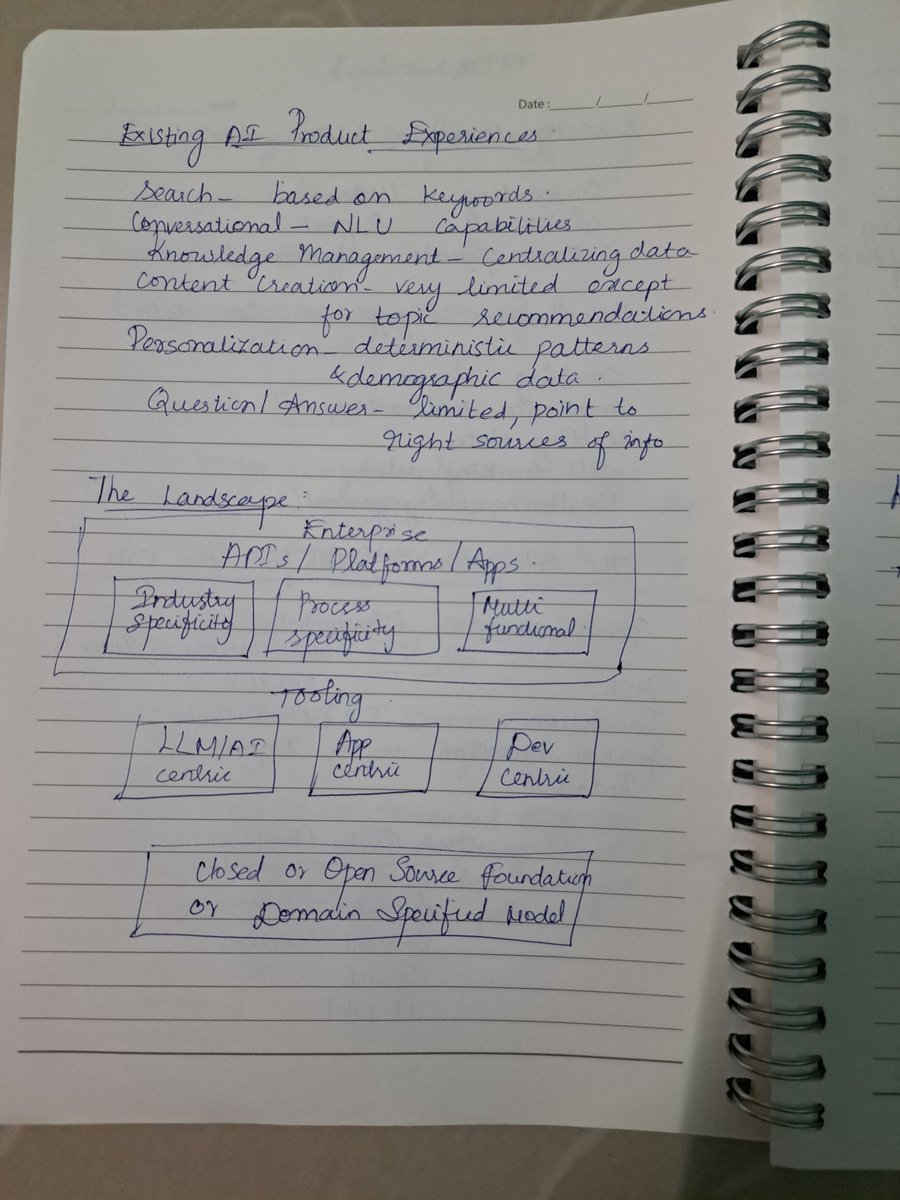 Date: / /
Existing AI Product Experiences
Search - based on keywords.
Conversational - NLU Capabilities
Knowledge Management - Centralizing data
Content Creation - very limited except
for topic recommendations.
Personalization - deterministic patterns
& demographic data.
Question/Answer - limited, point to
right sources of info
The Landscape:
Enterprise
APIs / Platforms / Apps.
Industry Process Multi
Specificity specificity functional.
Tooling
LLM/AI App Dev
centric centric centric
Closed or Open Source Foundation
or Domain Specified Model